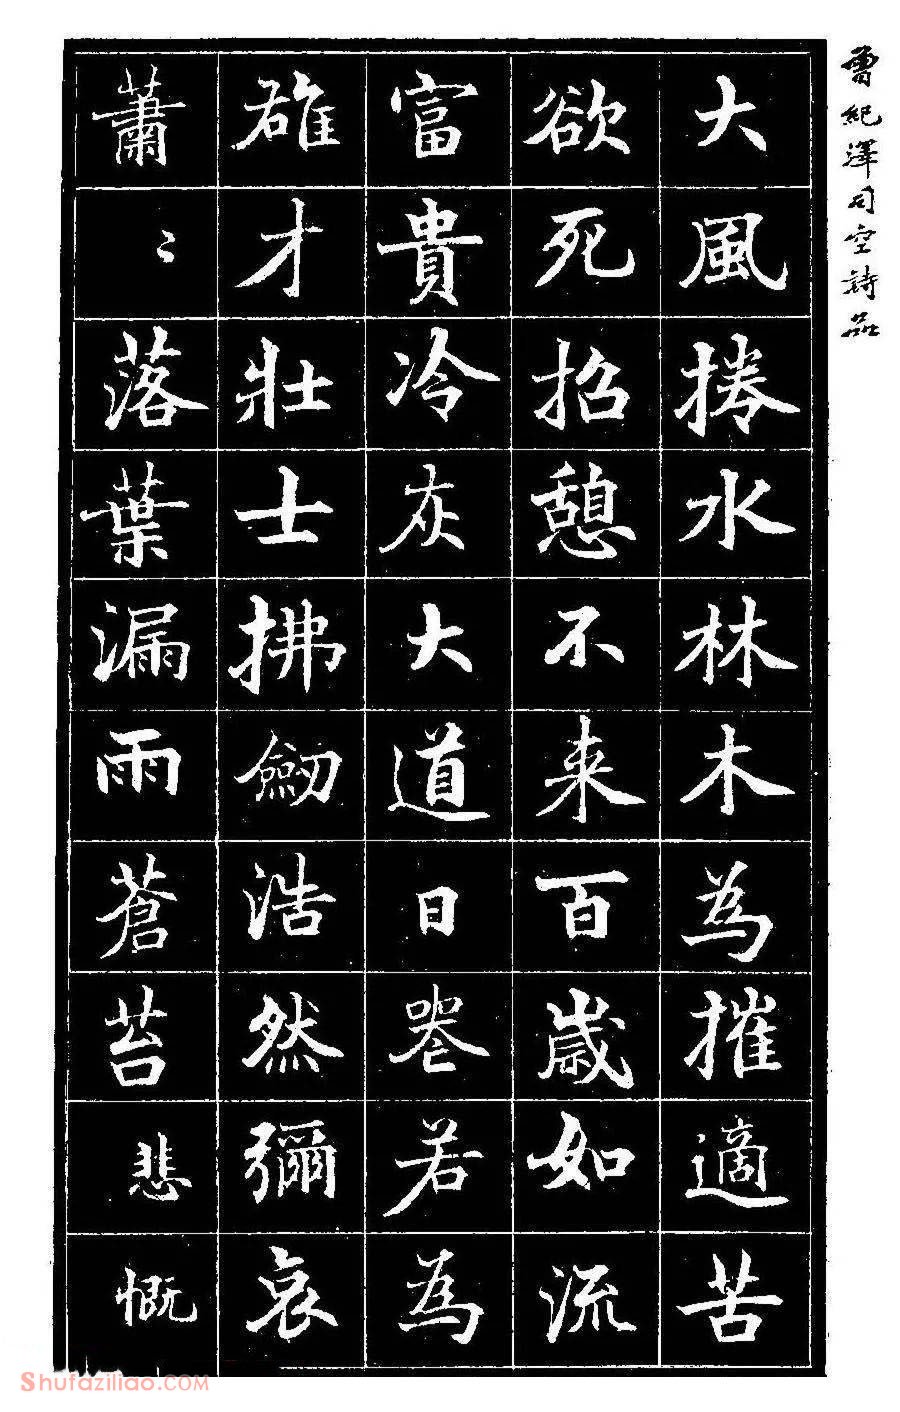 曾紀澤司空詩品
大風捲水林木為摧適苦
欲死招憩不来百歲如流
富貴冷灰大道日喪若為
雄才壯士拂劒浩然彌哀
蕭〻落葉漏雨蒼苔悲慨
Shufaziliao.COM